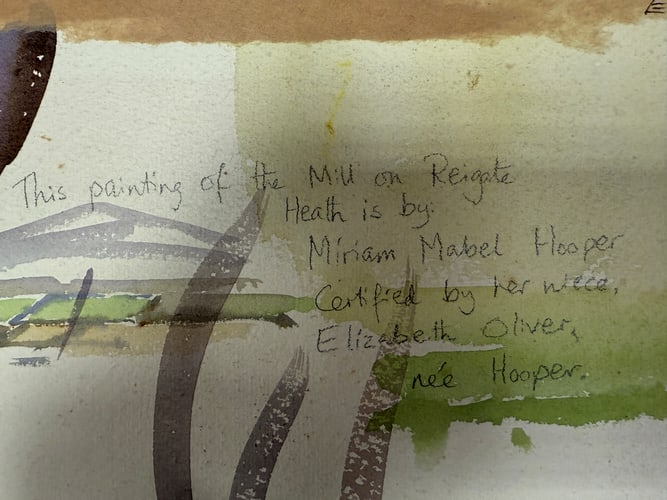 This painting of the Mill on Reigate
Heath is by:
Miriam Mabel Hooper
Certified by her niece,
Elizabeth Oliver,
née Hooper.